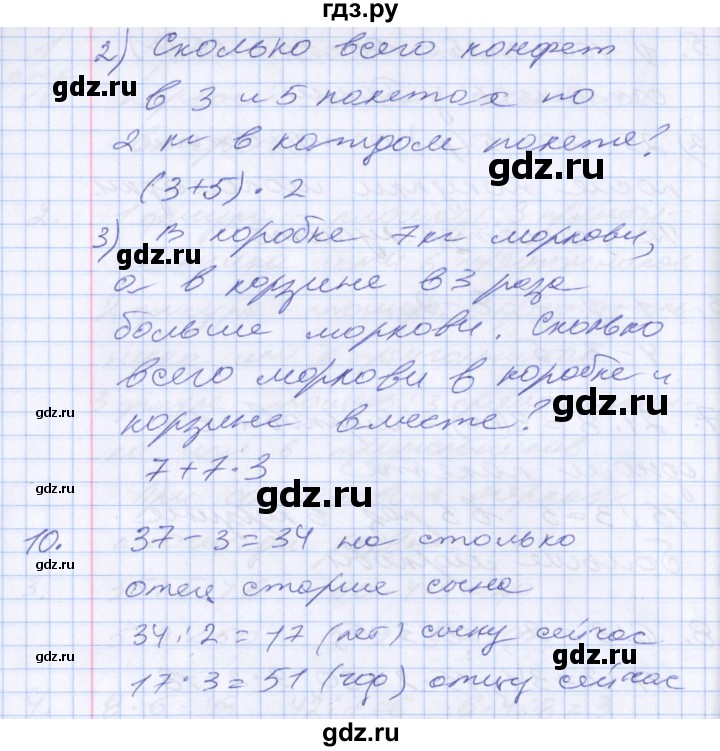 гдз.ру
2) Сколько всего конфет
в 3 и 5 пакетах по
2 кг в каждом пакете?
(3+5)·2
3) В коробке 7кг моркови,
а в корзине в 3 раза
больше моркови. Сколько
всего моркови в коробке и
корзине вместе?
7+7·3
10. 37-3=34 на столько
отец старше сына
34:2=17 (лет) сыну сейчас
17·3=51 (год) отцу сейчас
gdz.ru
gdz.ru
gdz.ru
gdz.ru
gdz.ru
gdz.ru
gdz.ru
gdz.ru
gdz.ru
gdz.ru